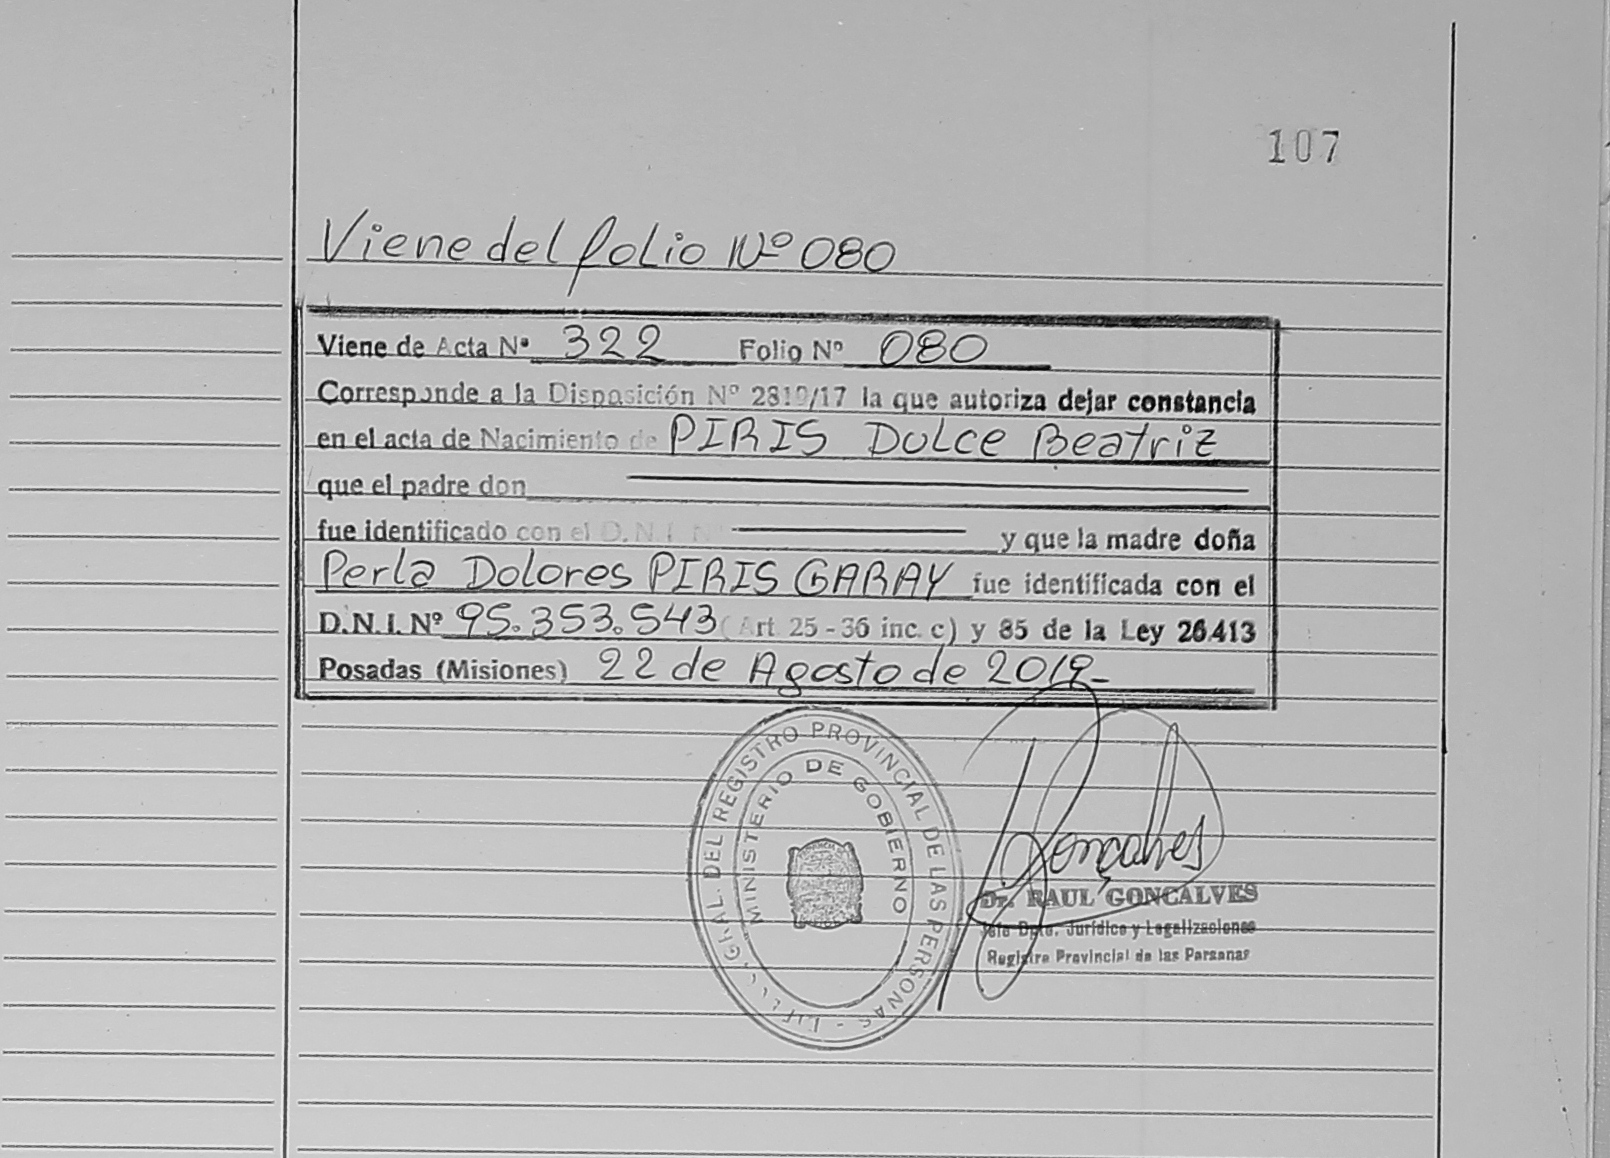 107
Viene del folio Nº 080
Viene de Acta Nº 322 Folio Nº 080
Corresponde a la Disposición Nº 2819/17 la que autoriza dejar constancia
en el acta de Nacimiento de PIRIS DULCE Beatriz
que el padre don
fue identificado con el D.N.I. N y que la madre doña
Perla Dolores PIRIS GARAY fue identificada con el
D.N.I. Nº 95.353.543 (Art. 25 - 36 inc. c) y 85 de la Ley 26.413
Posadas (Misiones) 22 de Agosto de 2019-
GRAL. DEL REGISTRO PROVINCIAL DE LAS PERSONAS -
MINISTERIO DE GOBIERNO
Gonçalves
Dr. RAUL GONCALVES
Jefe Dpto. Jurídico y Legalizaciones
Registro Provincial de las Personas